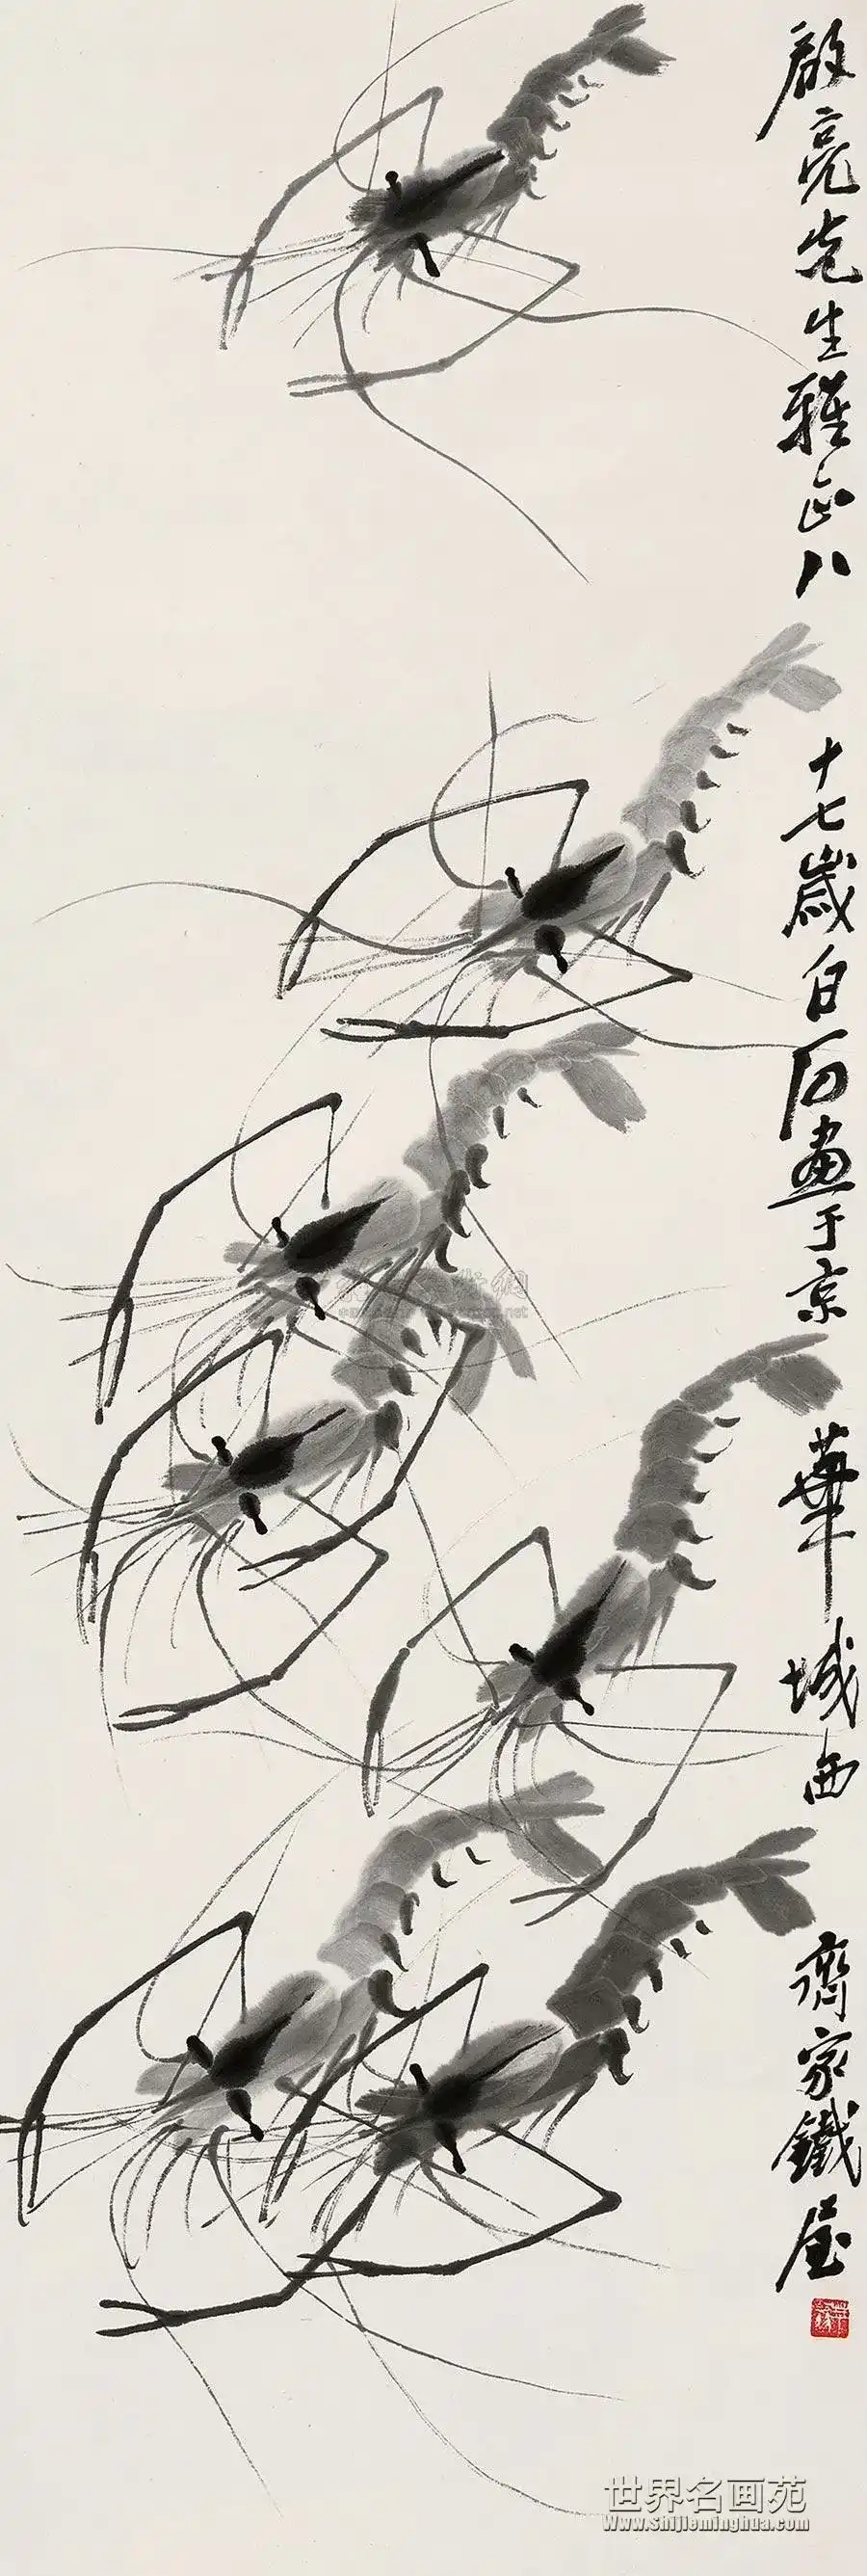 啟亮先生雅正八十七歲白石畫于京華城西齊家鐵屋
世界名画苑
www.shijieminghua.com